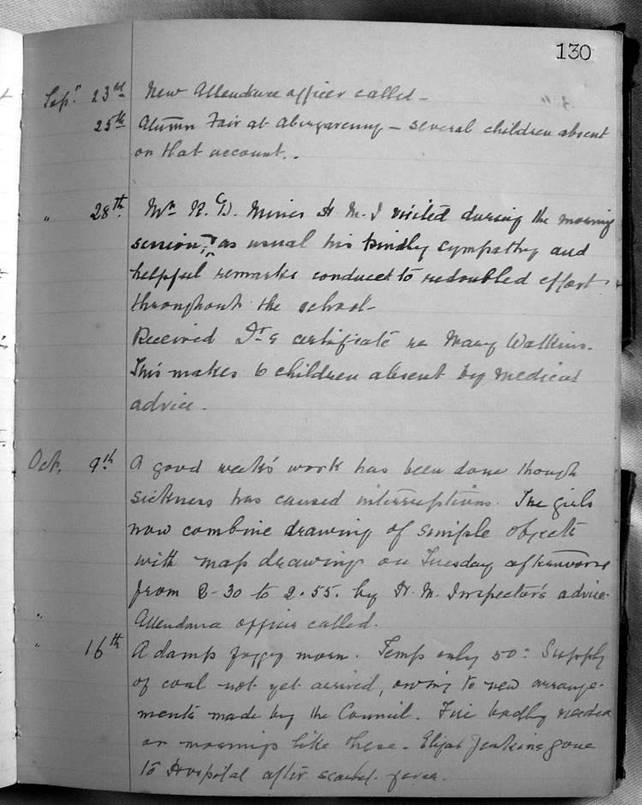 130
Sep. 23rd New Attendance officer called -
25th Autumn Fair at Abergavenny - several children absent
on that account.
" 28th Mr R. D. H. M. I visited during the morning
session, as usual his kindly sympathy and
helpful remarks conduced to redoubled effort
throughout the school -
Received Dr's certificate re Mary Watkins.
This makes 6 children absent by medical
advice.
Oct. 9th A good week's work has been done though
sickness has caused interruptions. The girls
now combine drawing of simple objects
with map drawing on Tuesday afternoons
from 2-30 to 2.55. by H. M. Inspector's advice.
" Attendance officer called.
" 16th A damp foggy morn. Temp only 50° Supply
of coal not yet arrived, owing to new arrange-
ments made by the Council. Fire badly needed
on mornings like these. Elijah Jenkins gone
to Hospital after scarlet fever.